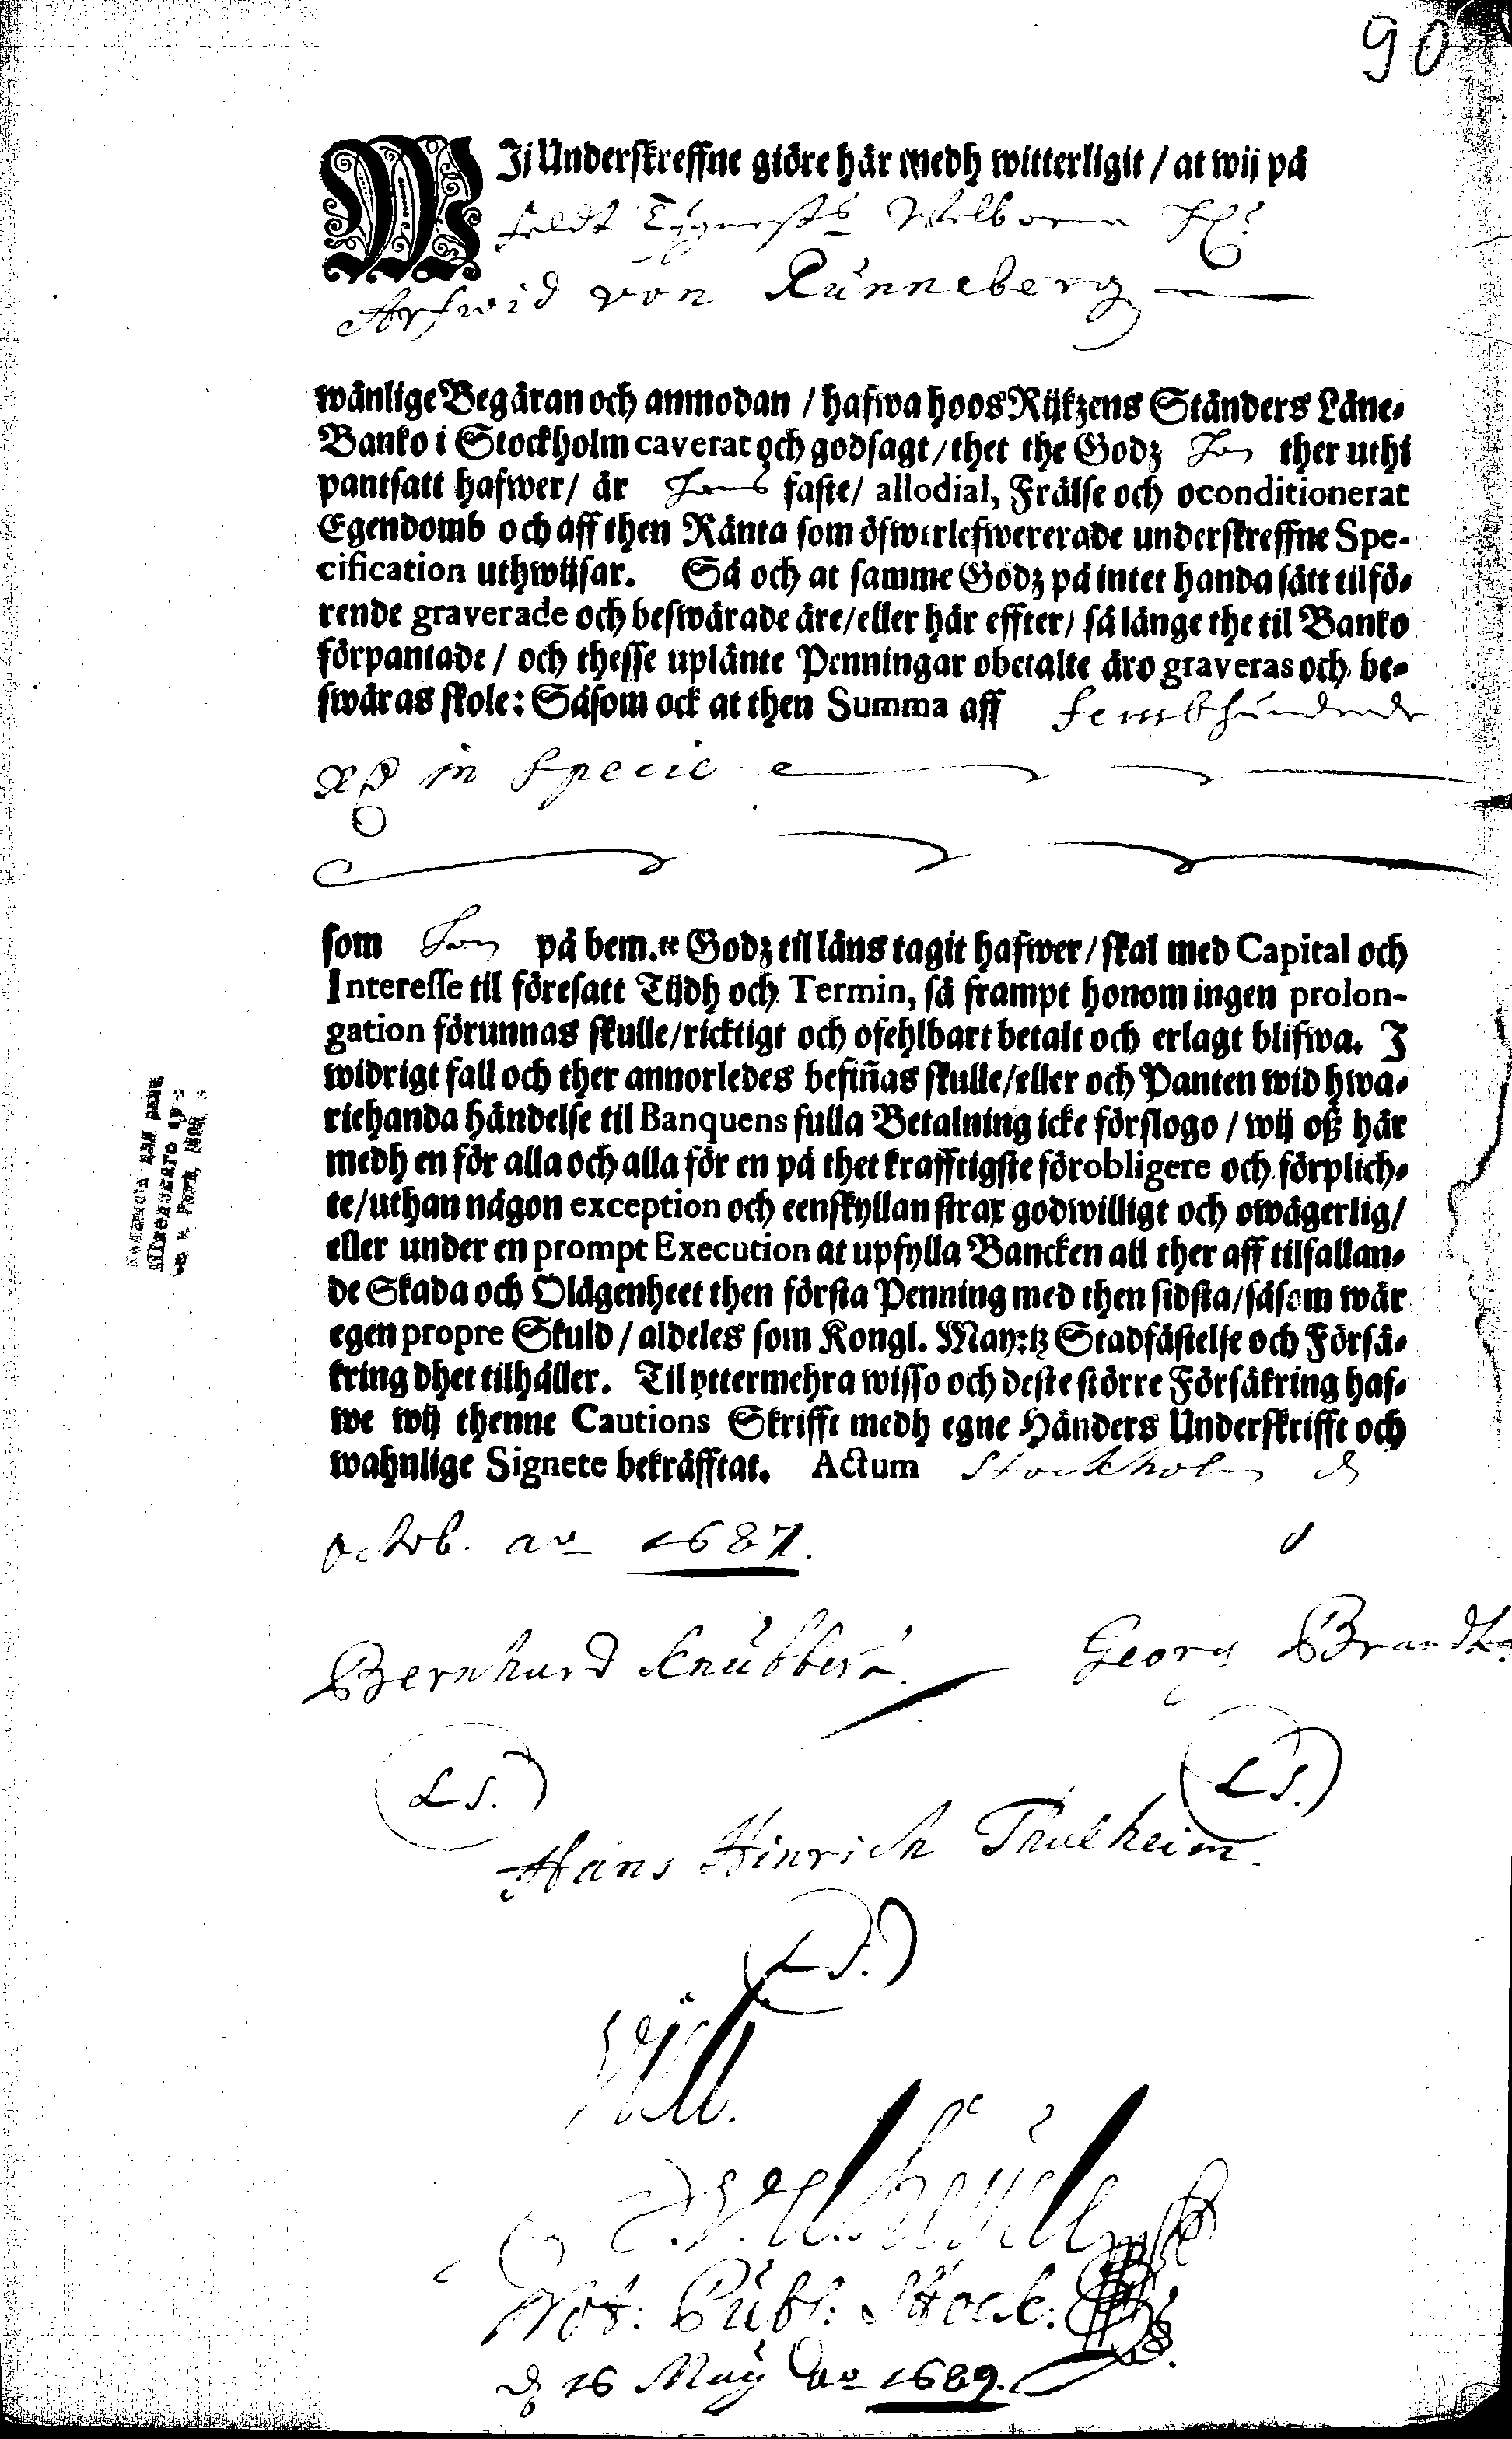 90
WIj Underskreffne giöre här medh witterligit / at wij på
feldt Tygmests Welborne H:r
Arfwid von Runneberg
wänlige Begäran och anmodan / hafwa hoos Rijkzens Ständers Läne-
Banko i Stockholm caverat och godsagt / thet the Godz Han ther uthi
pantsatt hafwer / är Hans faste / allodial, Frälse och oconditionerat
Egendomb och aff then Ränta som öfwerlefwererade underskreffne Spe-
cification uthwijsar. Så och at samme Godz på intet handa sätt tilfö-
rende graverade och beswärade äre / eller här effter / så länge the til Banko
förpantade / och thesse uplänte Penningar obetalte äro graveras och be-
swäras skole: Såsom ock at then Summa aff fembhundrade
RD in Specie
som Han på bem.te Godz til låns tagit hafwer / skal med Capital och
Interesse til föresatt Tijdh och Termin, så frampt honom ingen prolon-
gation förunnas skulle / ricktigt och ofehlbart betalt och erlagt blifwa. I
widrigt fall och ther annorledes befiñas skulle / eller och Panten wid hwa-
riehanda händelse til Banquens fulla Betalning icke förslogo / wij oß här
medh en för alla och alla för en på thet krafftigste förobligere och förplich-
te / uthan någon exception och eenskyllan strax godwilligt och owägerlig /
eller under en prompt Execution at upfylla Bancken all ther aff tilfallan-
de Skada och Olägenheet then första Penning med then sidsta / såsom wår
egen propre Skuld / aldeles som Kongl. May:tz Stadfästelse och Försä-
kring dhet tilhåller. Til yttermehra wisso och deste större Försäkring haf-
we wij thenne Cautions Skrifft medh egne Händers Underskrifft och
wahnlige Signete bekräfftat. Actum Stockholm d
octob. ao 1687.
Bernhard Knubbert. Georg Brandt.
L S. L S.
Hans Hinrich Thulheim.
L S.
Not: Publ: Stock:
d 16 May Ao 1689.